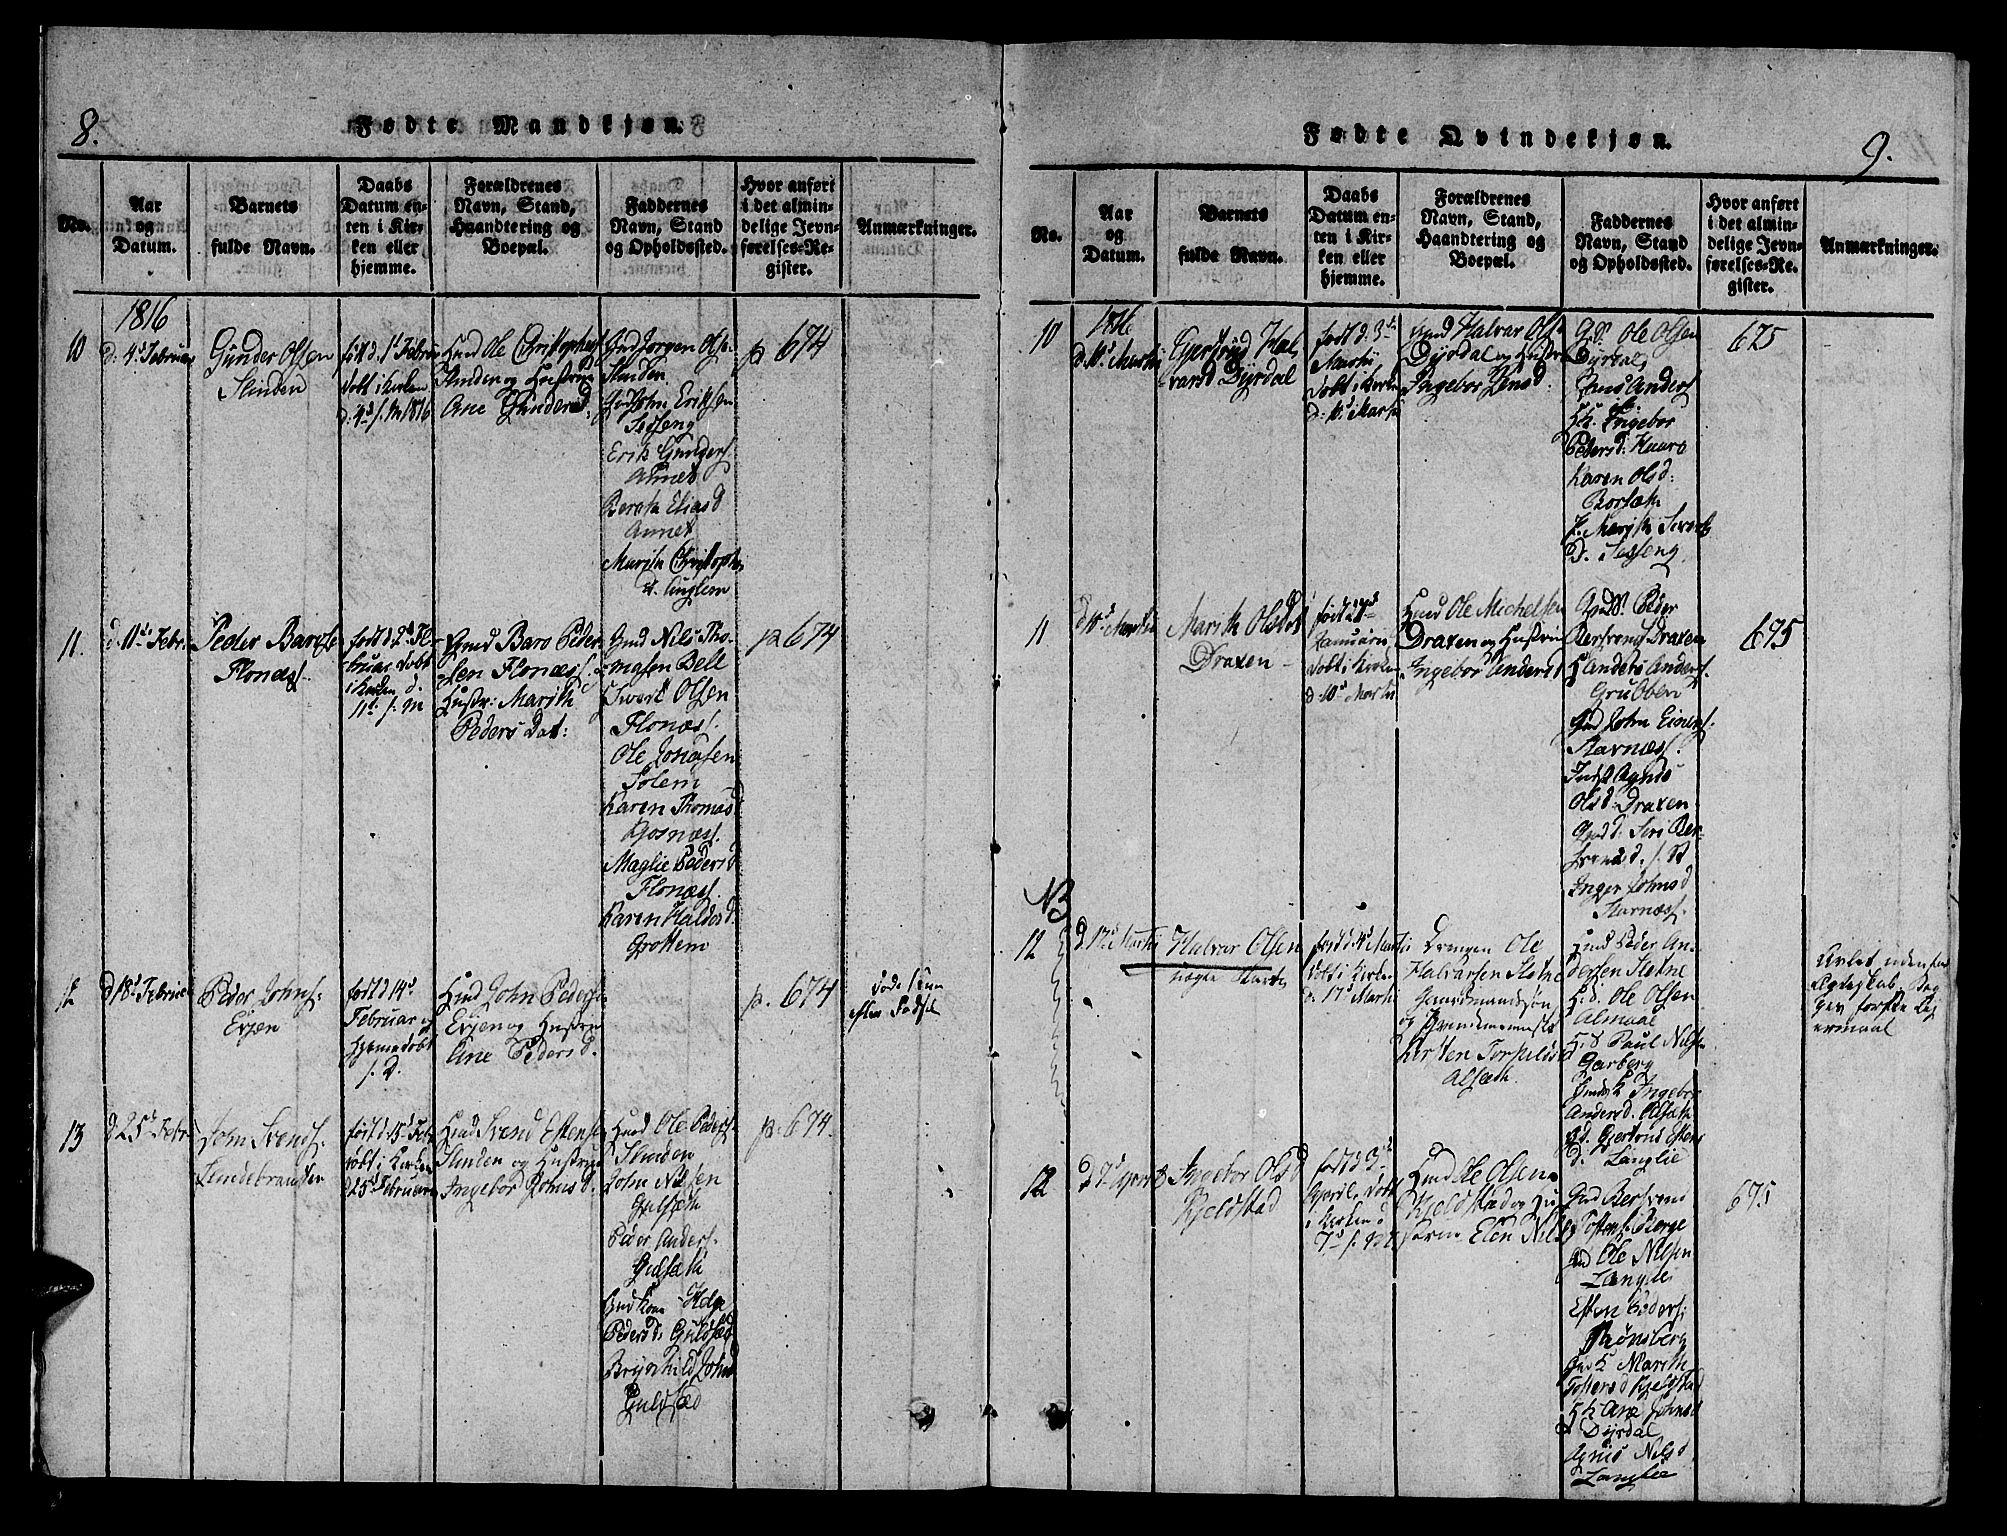 8.
Fødte Mandkjøn.
No.
Aar
og
Datum.
Barnets
fulde Navn.
Daabs
Datum en-
ten i Kir-
ken eller
hjemme.
Forældrenes
Navn, Stand,
Haandtering og
Boepæl.
Faddernes
Navn, Stand
og Opholdssted.
Hvor anført
i det almin-
delige Jevn-
førelses-Re-
gister.
Anmærkninger.
1816
10
d: 4d Februar
Gunder Olsen
Slinden
født d. 1d Febru
døbt i Kirken
d. 4d s. M 1816
Gmd Ole Christophers
Slinden og Hustrue
Ane Gundersd:
Gmd Jorgen Ols:
Slinden
John Eriksen
Seseng
Erik Gunders.
Annet
Berath Eliasd
Annet
Marith Christophers
d. Anglem
p 674
11.
d 11d Febr.
Peder Barosen
Flonæss.
født d 2d Fe-
bruar døbt
i Kirken d.
11d s. M
Gmd Baro Peder
sen Flonæss.
Hustr: Marith
Peders Dat:
Gmd Nils Tho-
masen Bell
Sivert Olsen
Flonæs.
Ole Jonasen
Solem
Karen Thomasd
Mosnæss.
Maglie Pedersd
Flonæss.
Karen Haldosd.
Grøttem
p. 674
12
d 18d Februar
Peder Johns:
Evjen
født d 14d
Februar og
hjemmedøbt
s. D.
Gmd John Peders
Evjen og Hustrue
Ane Pedersd.
p. 674
døde
efter Fødsel
13
d 25d Febr.
John Svends.
født d. 15d Feb.
døbt i Kirken
d 25d Februar
Svend Estens
Slinden og Hustrue
Ingebor Johnsd.
Ole Peders.
Slinden
John Nilsen
Gulsæth
Peder Anders.
Gulsæth
Gmd Kone Helge
Pedersd. Guldsæth
Brynhild Johnsd
Guldsæd
p. 674.
9.
Fødte Qvindekjøn.
No.
Aar
og
Datum.
Barnets
fulde Navn.
Daabs
Datum en-
ten i Kir-
ken eller
hjemme.
Forældrenes
Navn, Stand,
Haandtering og
Boepæl.
Faddernes
Navn, Stand
og Opholdssted.
Hvor anført
i det almin-
delige Jevn-
førelses-Re-
gister.
Anmærkninger.
1816
10
d. 10d Martii
Gjertrud Hal-
varsd Dyrdal
født d. 3d
Martii
døbt i Kirken
d: 10d Martii
Gmd Halvar Ols.
Dyrdal og Hustrue
Ingebor Jensd.
Ole Olsen
Dyrdal
Jens Anders.
Ingebor
Pedersd. Kaaro
Karen Olsd.
Borsæth
Marith Siverts
D. Seseng
675
11
d 10d Martii
Marith Olsdat
Draxen
født d
Januari
døbt i Kirken
d. 10d Martii
Gmd Ole Michelsen
Draxen og Hustrue
Ingebor Andersd
Peder
Draxen
Anders Anders.
Grubben
Gmd John Einers.
Stavnæss.
Agnis
Olsd Draxen
Siri Ber-
Inger Johnsd
Stavnæss.
675
NB
12
d. 17d Martii
Halvar Olsen
født d Martii
døbt i Kirken
d. 17d Martii
Drengen Ole
Halvarsen Slotne
Gaardmandssøn
og
Kirsten Torkilsd
Alsæth.
Gmd Peder An-
dersen Slotne
Ole Olsen
Almaae
Paul Nilsen
Garberg
Ingebor
Andersd. Alsæth
Estens
d. Langlie
Avlet uden for
Ægteskab, beg
ges første Lej
ermaal
12
d 7d April
Ingebor Olsd
Kjeldstad
født d 3d
April, døbt
i Kirken d
7d s. M
Gmd Ole Olsen
Kjeldstad og Hu
struen Elen Nilsd
Gmd Bersvend
Tostens. Berge
Ole Nilsen
Langlie
Esten Peders.
Rønsberg
Marith
Tostensd Kjeldstad
Ane Johnsd
Dyrdal
Agnis Nilsd
Langlie
675